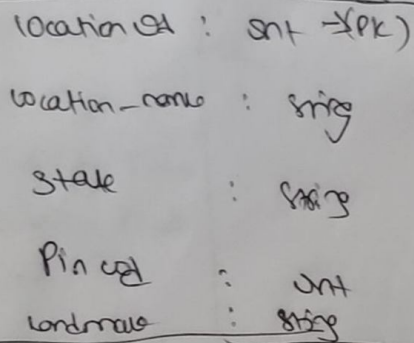 locationId : Int → (PK)
location_name : String
State : String
Pin cod : Int
Landmark : String